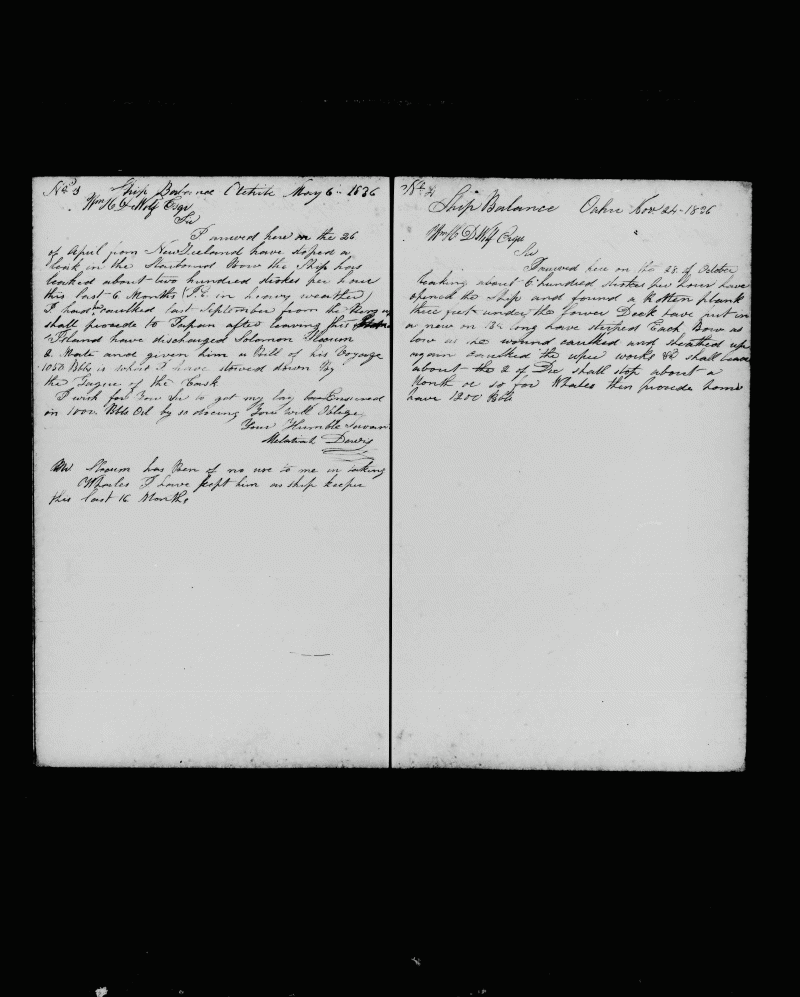 No 3 Ship Balance Otehite May 6th 1836
Wm H DeWolf Esqr
Sir
I arived here on the 26
of April from New Zeeland have stoped a
leak in the Starboard Bow the Ship has
leaked about two hundred strokes per hour
this last 6 Months (I.E. in heavy weather)
I had caulked last September from the
shall procede to Japan after leaving this
Island have discharged Solomon Slocum
2 Mate and given him a Bill of his Voyage
1050 Bbls is what I have stowed down by
the Gague of the Cask
I wish for you Sir to get my lay Ensured
on 1000 Bbls Oil by so doeing you will Oblige
Your Humble Servant
Davis
Mr Slocum has Been of no use to me in taking
Whales I have kept him as ship keeper
this last 16 Months
No 4
Ship Balance Oahu Nov 24 - 1836
Wm H DWolf Esqr
Sir
I arived here on the 28 of October
leaking about 6 hundred strokes per hour have
opened the Ship and found a Rotten plank
three feet under the lower Deck have put in
a new on long have striped Each Bow as
low as she wound caulked and sheathed up
again caulked the uper works & shall leave
about the 2 of Dec shall stop about a
Month or so for Whales then procede home
have 1200 Bbls